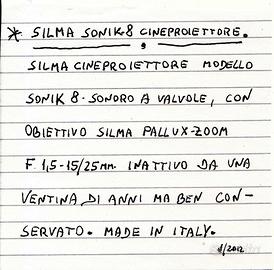 * SILMA SONIK8 CINEPROIETTORE.
SILMA CINEPROIETTORE MODELLO
SONIK 8 - SONORO A VALVOLE, CON
OBIETTIVO SILMA PALLUX-ZOOM
F. 1,5-15/25mm. INATTIVO DA UNA
VENTINA DI ANNI MA BEN CON-
SERVATO. MADE IN ITALY.